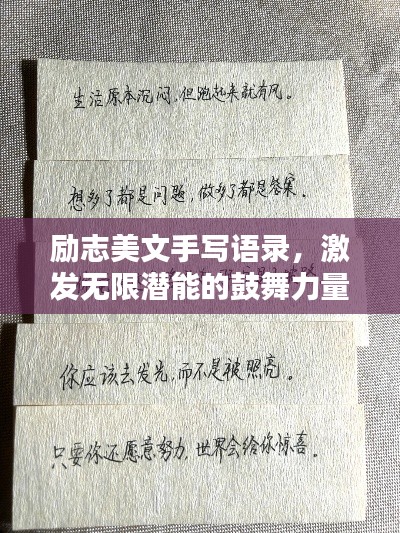 生活原本沉闷，但跑起来就有风。
想多了都是问题，做多了都是答案。
励志美文手写语录，激
发无限潜能的鼓舞力量
你应该去发光，而不是被照亮。
只要你还愿意努力，世界会给你惊喜。